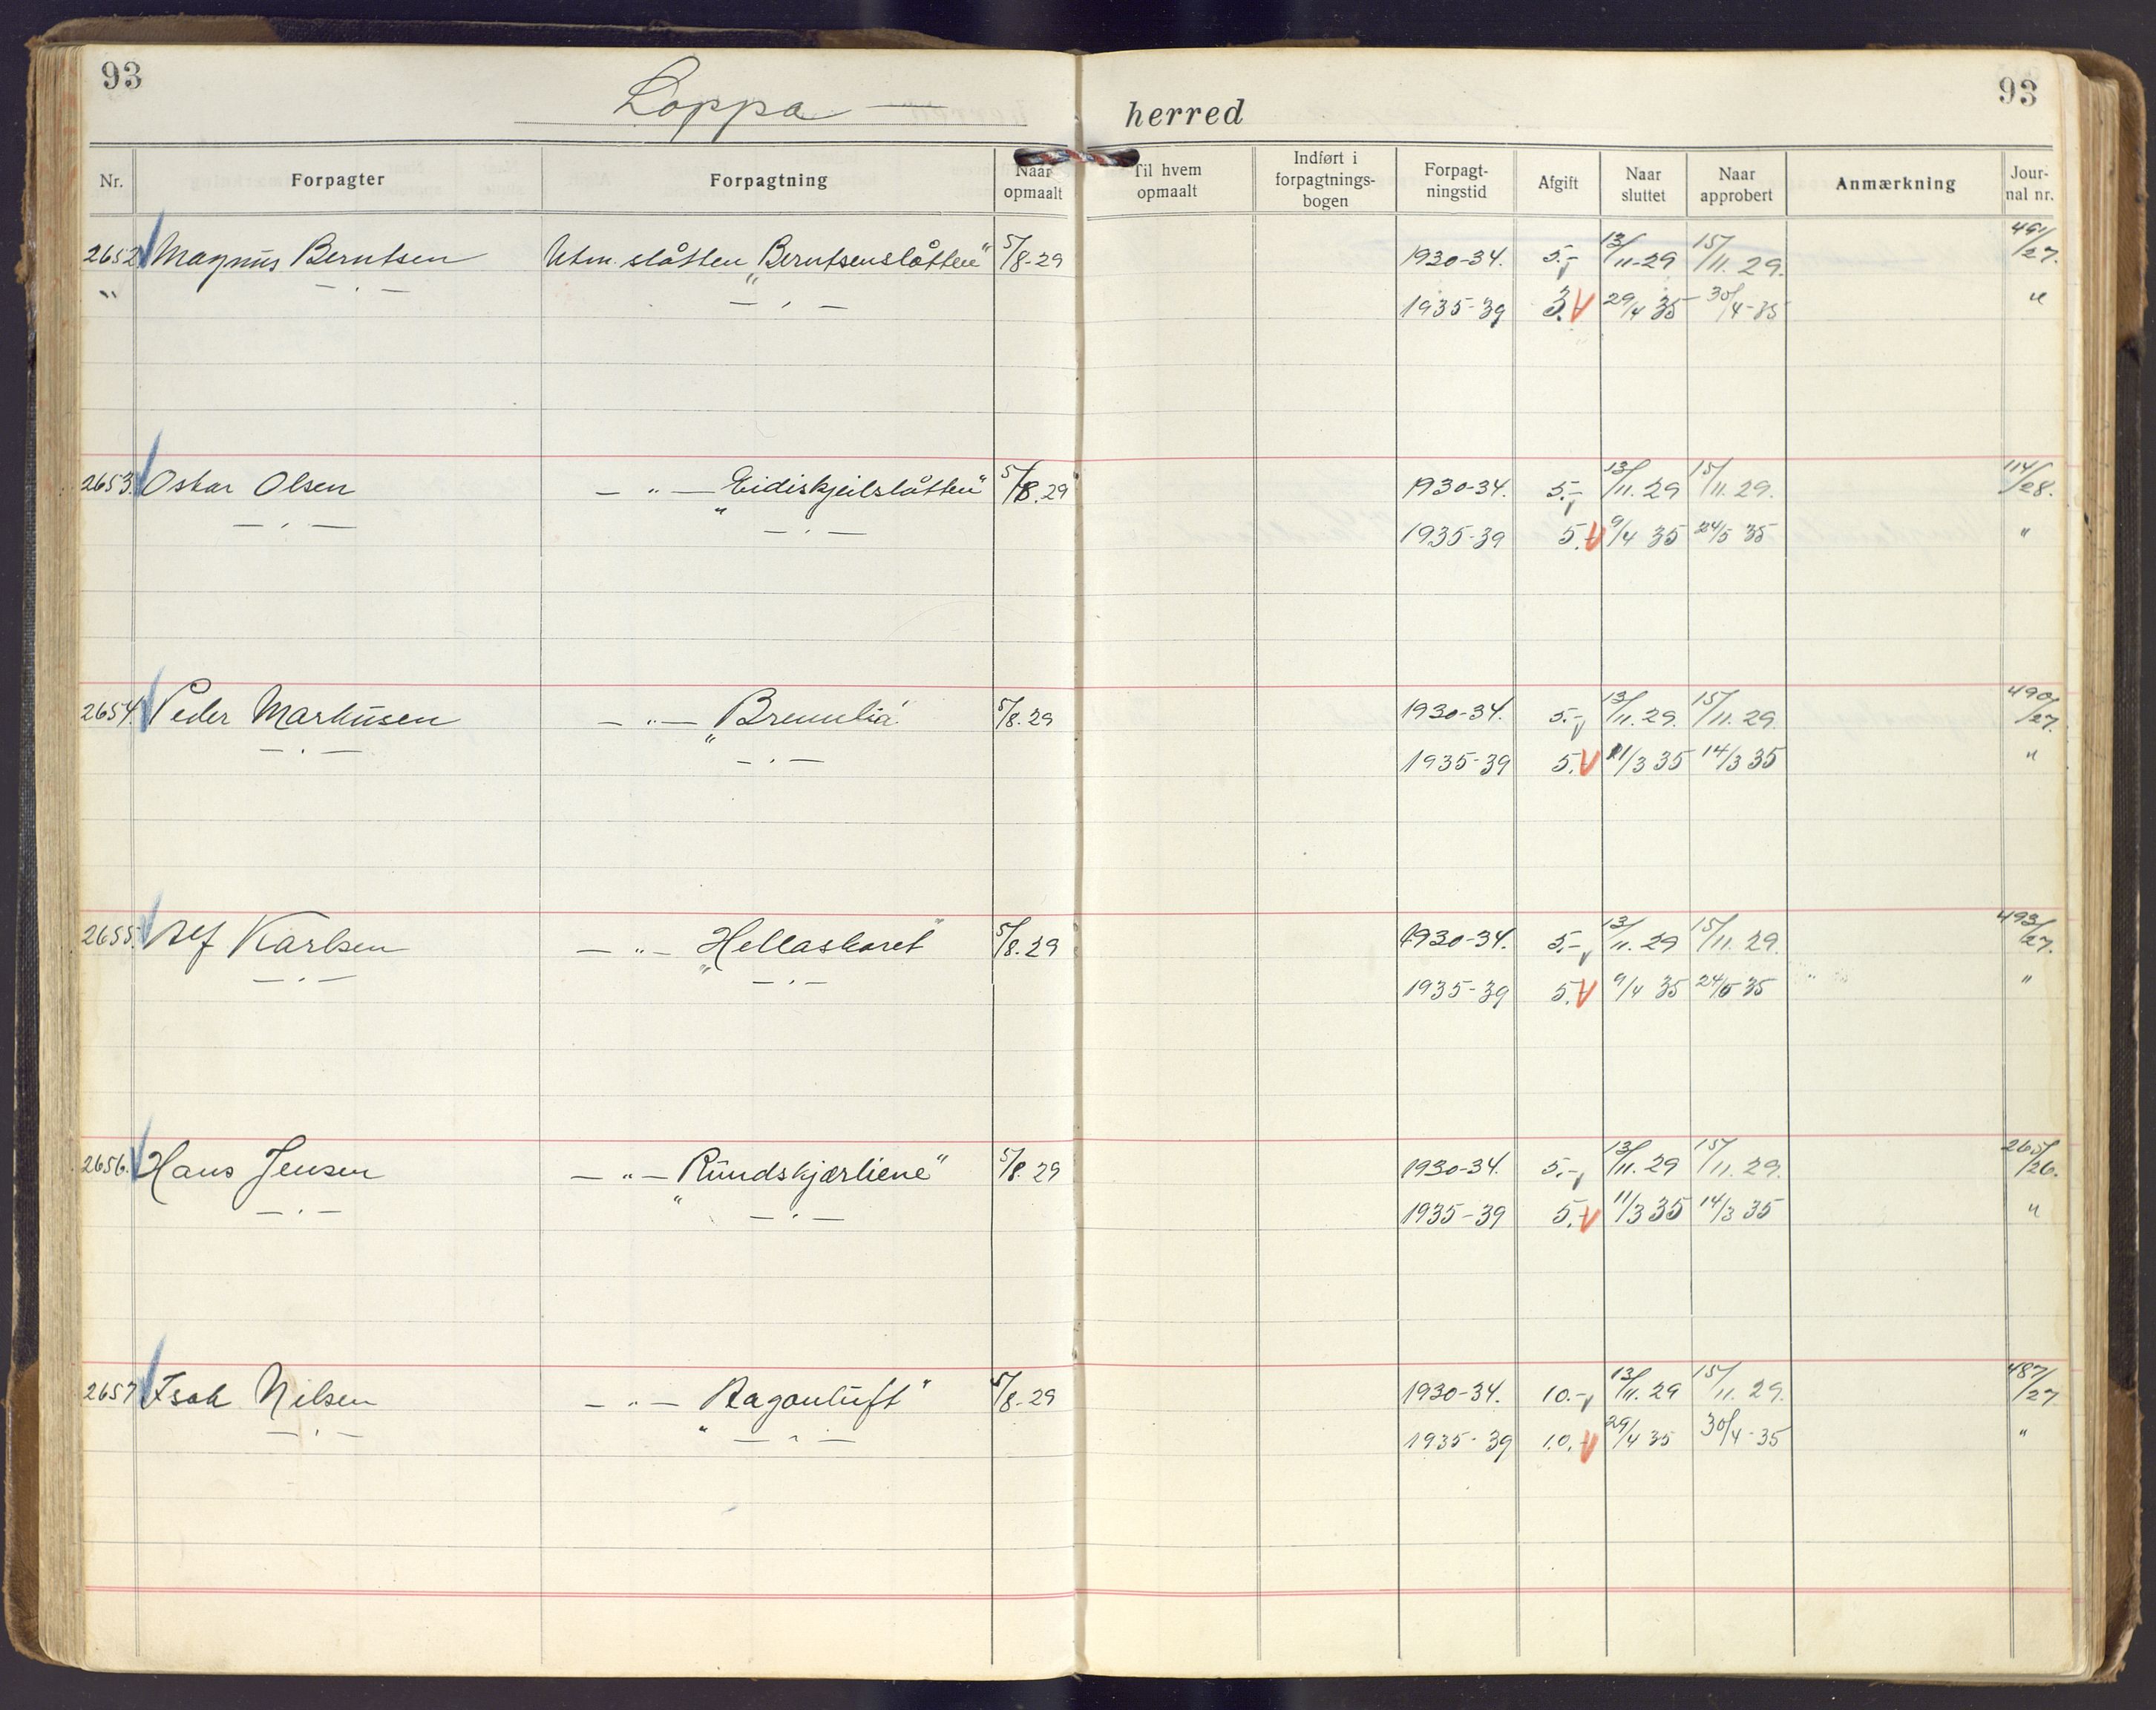 93
Loppa — herred
93
Nr. Forpagter Forpagtning Naar opmaalt Til hvem opmaalt Indført i forpagtnings-bogen Forpagt-ningstid Afgift Naar sluttet Naar approbert Anmærkning Jour-nal nr.
2652 Magnus Berntsen Utm. slåtten „Berntsenslåtten" 5/8-29 1930-34. 5.- 13/11-29 15/11. 29. 491/27.
" — " — — " — 1935-39 29/4 35 30/4-35 "
2653. Oskar Olsen — " — „Eidiskjeilslåtten" 5/8.29 1930-34. 5.- 13/11. 29 15/11. 29. 114/28.
— " — — " — 1935-39 5.- 9/4 35 24/5 35 "
2654. Peder Markusen — " — „Bremlia" 5/8.29 1930-34. 5.- 13/11. 29. 15/11. 29. 490/27.
— " — — " — 1935-39 5.- 11/3 35 14/3 35 "
2655. Alf Karlsen — " — „Hellaskaret" 5/8.29 1930-34. 5.- 13/11. 29 15/11. 29. 493/27.
— " — — " — 1935-39 5.- 9/4 35 24/5 35 "
2656. Hans Jensen — " — „Rundskjærliene" 5/8.29 1930-34. 5.- 13/11. 29 15/11. 29. 265/26.
— " — — " — 1935-39 5.- 11/3 35 14/3 35 "
2657 Isak Nilsen — " — „Ragonluft" 5/8-29 1930-34. 10.- 13/11. 29 15/11. 29. 487/27
— " — — " — 1935-39 10.- 29/4 35 30/4-35 "